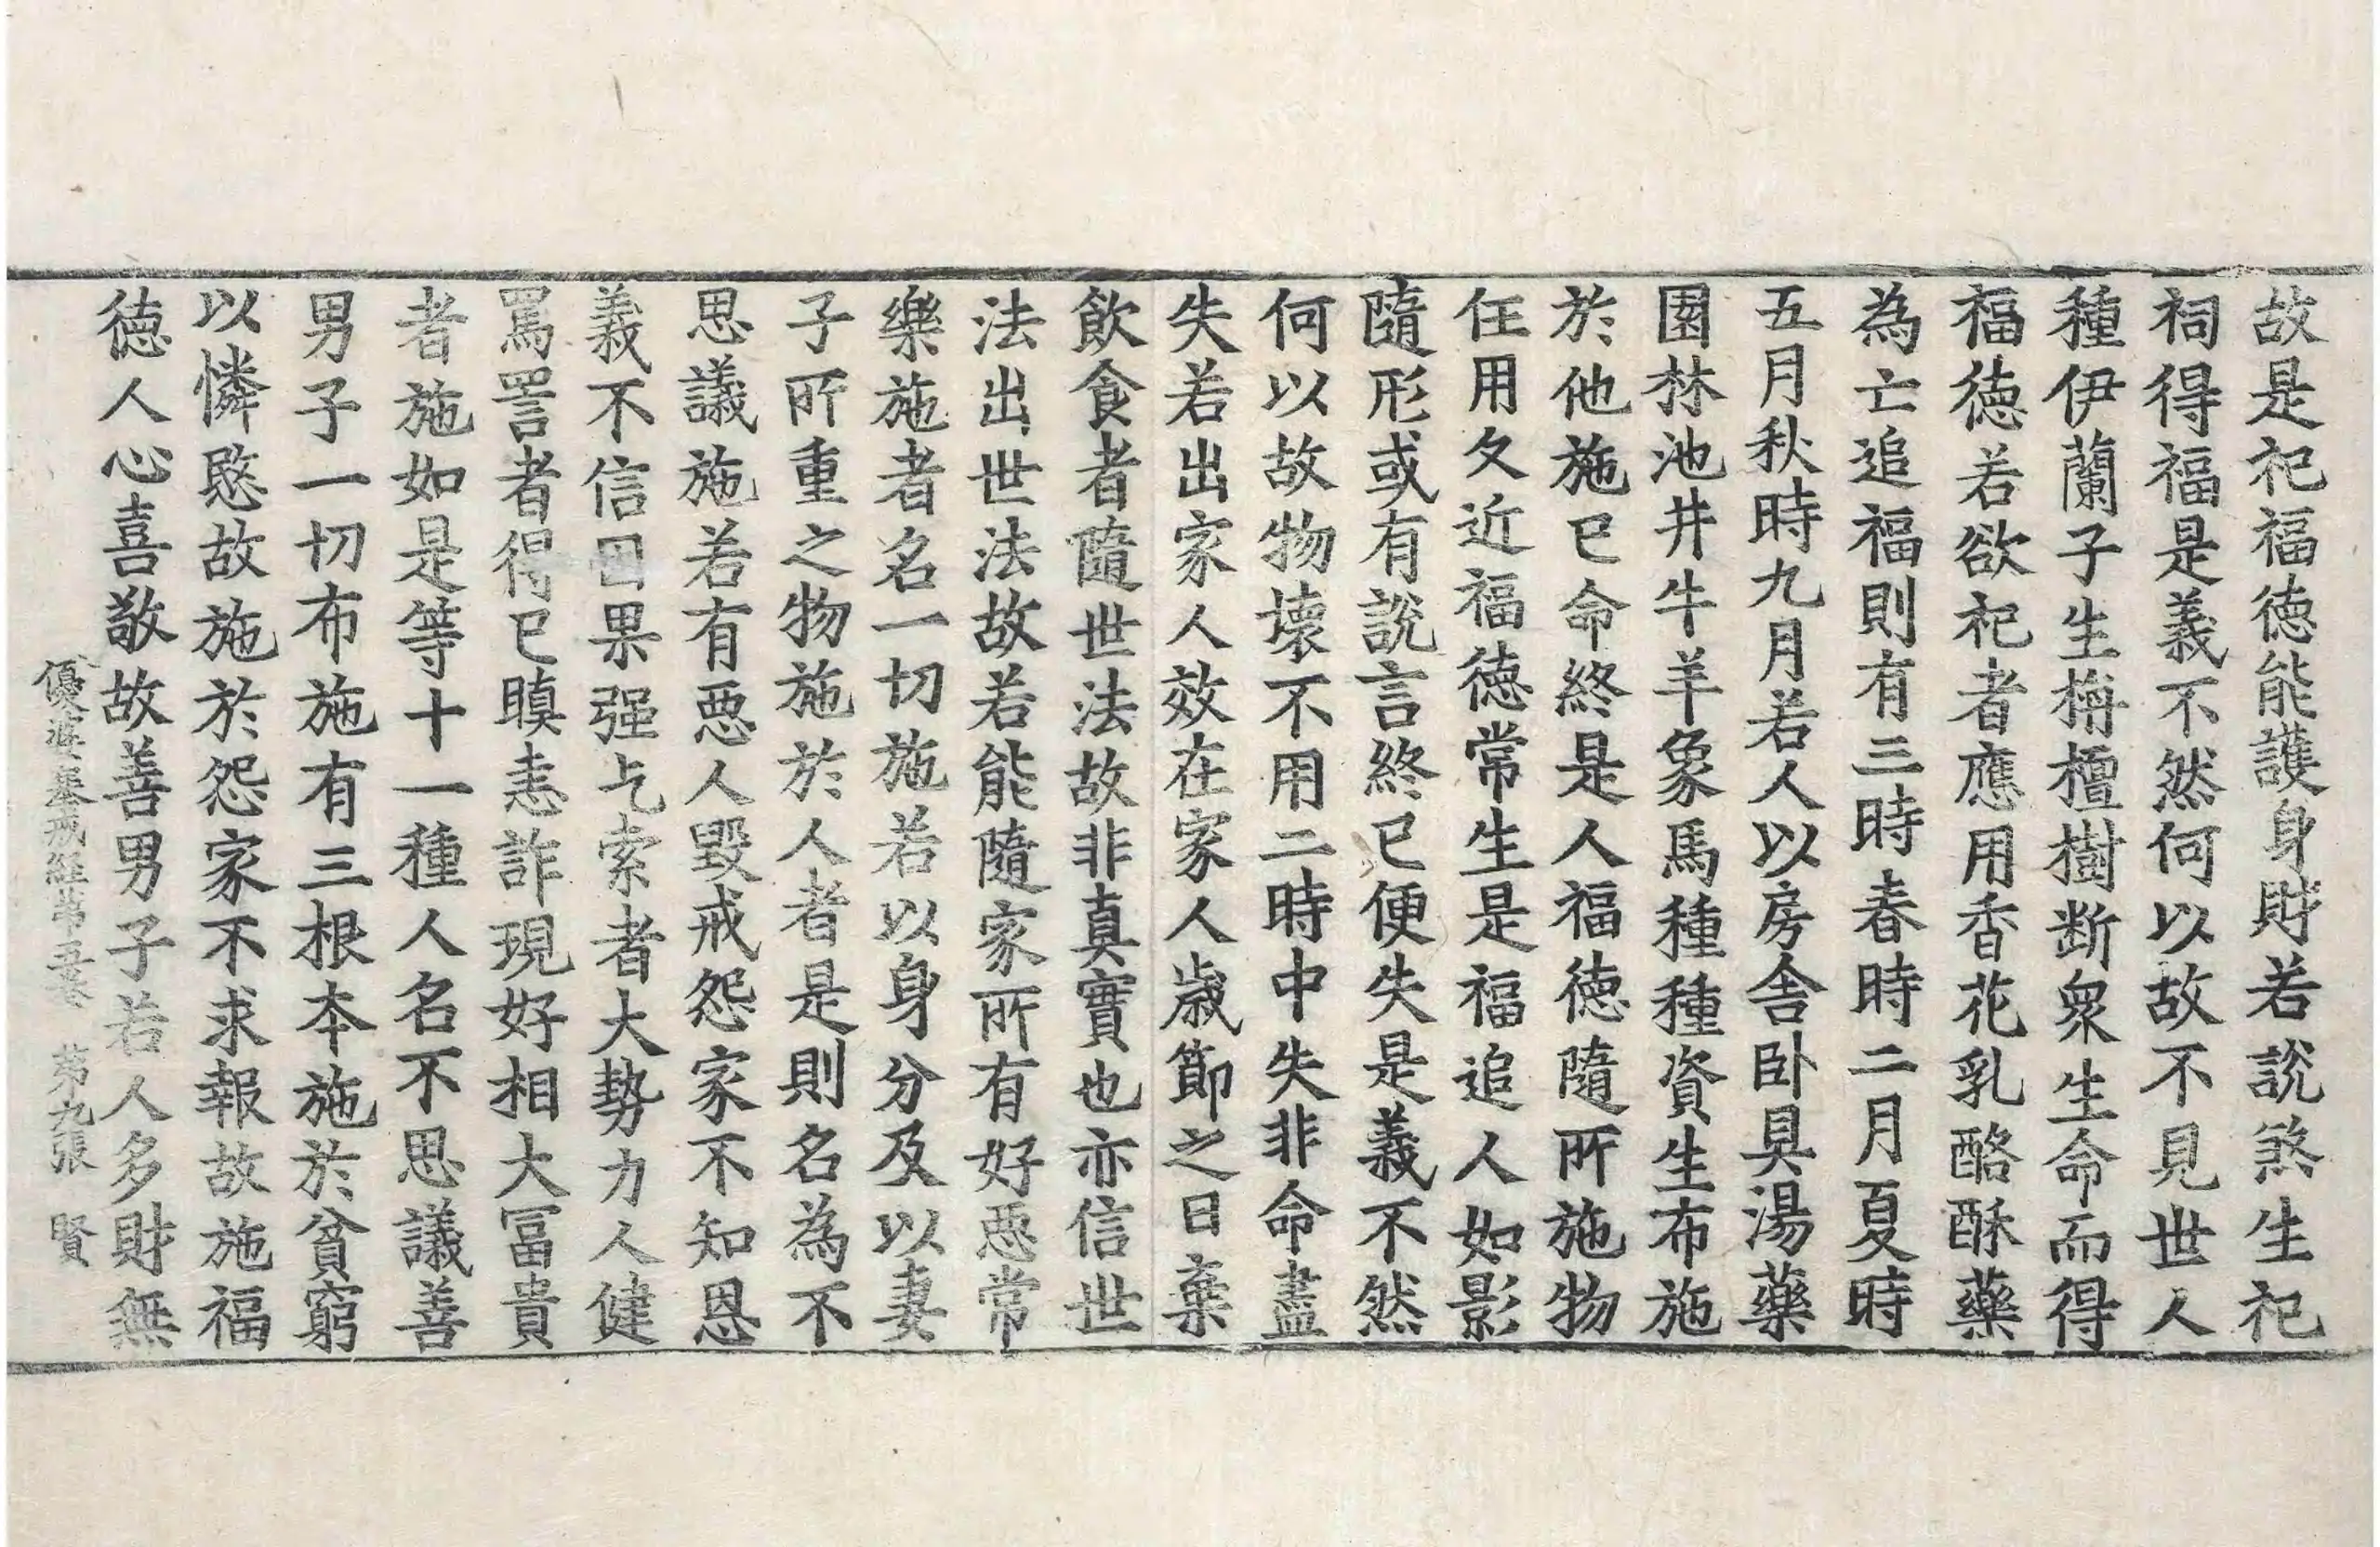 故是祀福德能護身財若說煞生祀
祠得福是義不然何以故不見世人
種伊蘭子生栴檀樹断衆生命而得
福德若欲祀者應用香花乳酪酥藥
為亡追福則有三時春時二月夏時
五月秋時九月若人以房舍卧具湯藥
園林池井牛羊象馬種種資生布施
於他施已命終是人福德隨所施物
任用久近福德常生是福追人如影
隨形或有說言終已便失是義不然
何以故物壞不用二時中失非命盡
失若出家人效在家人歲節之日棄
飲食者隨世法故非真實也亦信世
法出世法故若能隨家所有好惡常
樂施者名一切施若以身分及以妻
子所重之物施於人者是則名為不
思議施若有惡人毀戒怨家不知恩
義不信因果强乞索者大勢力人健
罵詈者得已瞋恚詐現好相大冨貴
者施如是等十一種人名不思議善
男子一切布施有三根本施於貧窮
以憐愍故施於怨家不求報故施福
德人心喜敬故善男子若人多財無
優婆塞戒經第五卷 第九張 賢